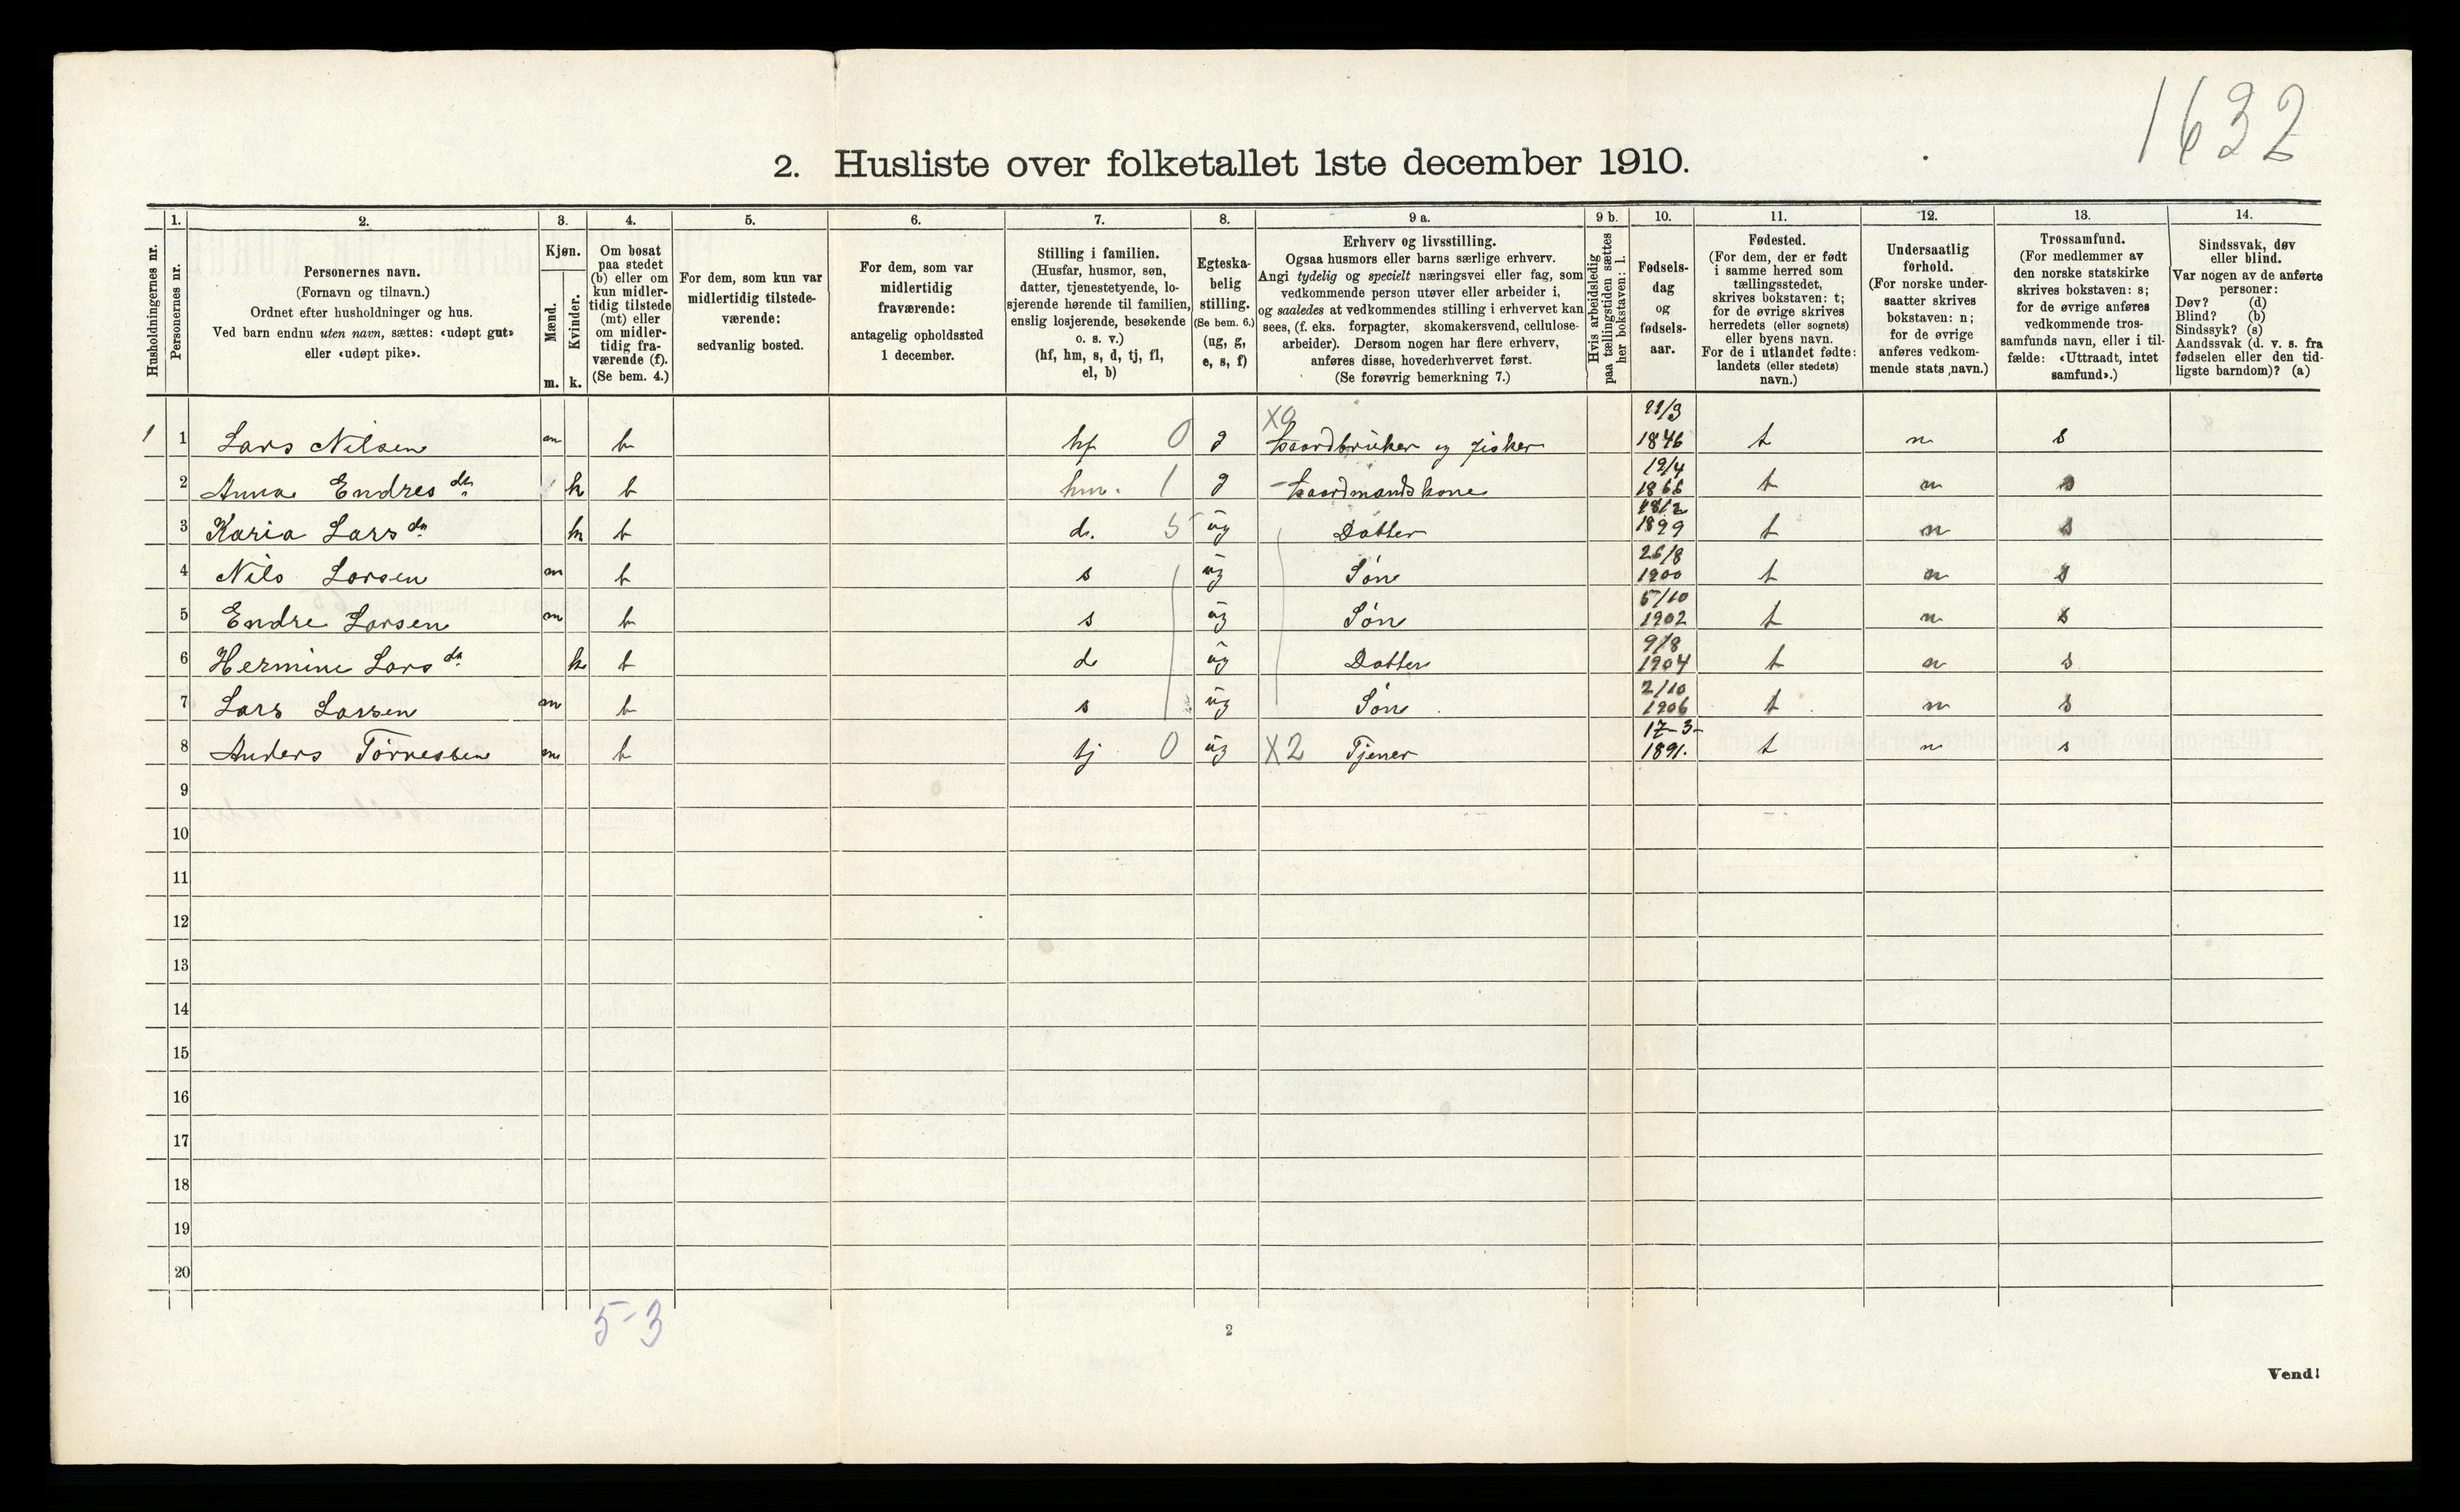 1632
2. Husliste over folketallet 1ste december 1910.
Husholdningernes nr.
1.
Personernes nr.
2.
Personernes navn.
(Fornavn og tilnavn.)
Ordnet efter husholdninger og hus.
Ved barn endnu uten navn, sættes: «udøpt gut»
eller «udøpt pike».
3.
Kjøn.
Mænd.
Kvinder.
m. k.
4.
Om bosat
paa stedet
(b) eller om
kun midler-
tidig tilstede
(mt) eller
om midler-
tidig fra-
værende (f).
(Se bem. 4.)
5.
For dem, som kun var
midlertidig tilstede-
værende:
sedvanlig bosted.
6.
For dem, som var
midlertidig
fraværende:
antagelig opholdssted
1 december.
7.
Stilling i familien.
(Husfar, husmor, søn,
datter, tjenestetyende, lo-
sjerende hørende til familien,
enslig losjerende, besøkende
o. s. v.)
(hf, hm, s, d, tj, fl,
el, b)
8.
Egteska-
belig
stilling.
(Se bem. 6.)
(ug, g,
e, s, f)
9 a.
Erhverv og livsstilling.
Ogsaa husmors eller barns særlige erhverv.
Angi tydelig og specielt næringsvei eller fag, som
vedkommende person utøver eller arbeider i,
og saaledes at vedkommendes stilling i erhvervet kan
sees, (f. eks. forpagter, skomakersvend, cellulose-
arbeider). Dersom nogen har flere erhverv,
anføres disse, hovederhvervet først.
(Se forøvrig bemerkning 7.)
9 b.
Hvis arbeidsledig
paa tællingstiden sættes
her bokstaven: l.
10.
Fødsels-
dag
og
fødsels-
aar.
11.
Fødested.
(For dem, der er født
i samme herred som
tællingsstedet,
skrives bokstaven: t;
for de øvrige skrives
herredets (eller sognets)
eller byens navn.
For de i utlandet fødte:
landets (eller stedets)
navn.)
12.
Undersaatlig
forhold.
(For norske under-
saatter skrives
bokstaven: n;
for de øvrige
anføres vedkom-
mende stats navn.)
13.
Trossamfund.
(For medlemmer av
den norske statskirke
skrives bokstaven: s;
for de øvrige anføres
vedkommende tros-
samfunds navn, eller i til-
fælde: «Uttraadt, intet
samfund».)
14.
Sindssvak, døv
eller blind.
Var nogen av de anførte
personer:
Døv? (d)
Blind? (b)
Sindssyk? (s)
Aandssvak (d. v. s. fra
fødselen eller den tid-
ligste barndom)? (a)
1 1 Lars Nilsen m b hf 0 g Xa Gaardbruker og fisker 1846 t n s
2 Anna Endresdtr k b hm. 1 g Gaardmandskone 19/4 1866 t n s
3 Karia Larsdtr k b d. 5 ug Datter 1899 t n s
4 Nils Larsen m b s ug Søn 26/8 1900 t n s
5 Endre Larsen m b s ug Søn 5/10 1902 t n s
6 Hermine Larsdtr k b d ug Datter 9/8 1904 t n s
7 Lars Larsen m b s ug Søn 2/10 1906 t n s
8 Anders Tørresen m b tj 0 ug X2 Tjener 17-3- 1891. t n s
9
10
11
12
13
14
15
16
17
18
19
20
5-3
2
Vend!